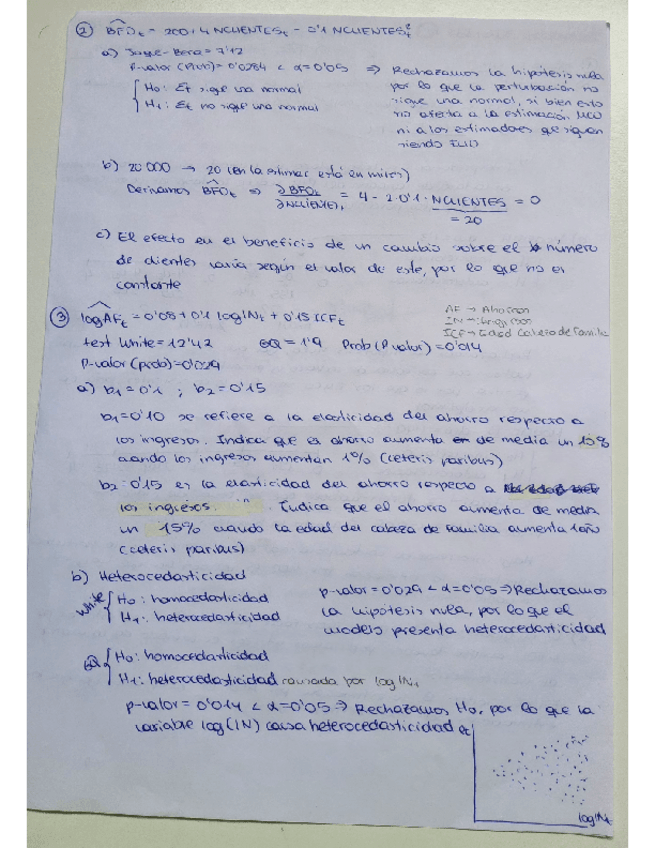 ② BFOt = 200+4 NCLIENTESt - 0'1 NCLIENTESt²
a) Jaque-Bera = 7'12
P-valor (Prob) = 0'0284 < α=0'05 ⇒ Rechazamos la hipótesis nula
{ H0: Et sigue una normal
H1: Et no sigue una normal
por lo que la perturbación no
sigue una normal, si bien esto
no afecta a la estimación MCO
ni a los estimadores que siguen
siendo ELIO
b) 20 000 → 20 (en la estimac está en miles)
Derivamos BFOt ⇒ ∂BFOt/∂NCLIENTEt = 4 - 2·0'1·NCLIENTES = 0
= 20
c) El efecto en el beneficio de un cambio sobre el número
de clientes varía según el valor de este, por lo que no es
constante
③ logAFt = 0'08+0'1 logINt + 0'15 ICFt
AF → Ahorros
IN → Ingresos
ICF → Edad Cabeza de Familia
test White = 12'42 GQ = 1'9 Prob (P valor) = 0'014
P-valor (prob) = 0'029
a) b1 = 0'1 ; b2 = 0'15
b1 = 0'10 se refiere a la elasticidad del ahorro respecto a
los ingresos. Indica que es ahorro aumenta de media un 10%
cuando los ingresos aumentan 1% (ceteris paribus)
b2 = 0'15 es la elasticidad del ahorro respecto a
los ingresos. Indica que el ahorro aumenta de media
un 15% cuando la edad del cabeza de familia aumenta 1 año
(ceteris paribus)
b) Heterocedasticidad
White { H0: homocedasticidad
H1: heterocedasticidad
p-valor = 0'029 < α=0'05 ⇒ Rechazamos
la hipótesis nula, por lo que el
modelo presenta heterocedasticidad
GQ { H0: homocedasticidad
H1: heterocedasticidad causada por logINt
p-valor = 0'014 < α=0'05 ⇒ Rechazamos H0, por lo que la
variable log(IN) causa heterocedasticidad
logINt